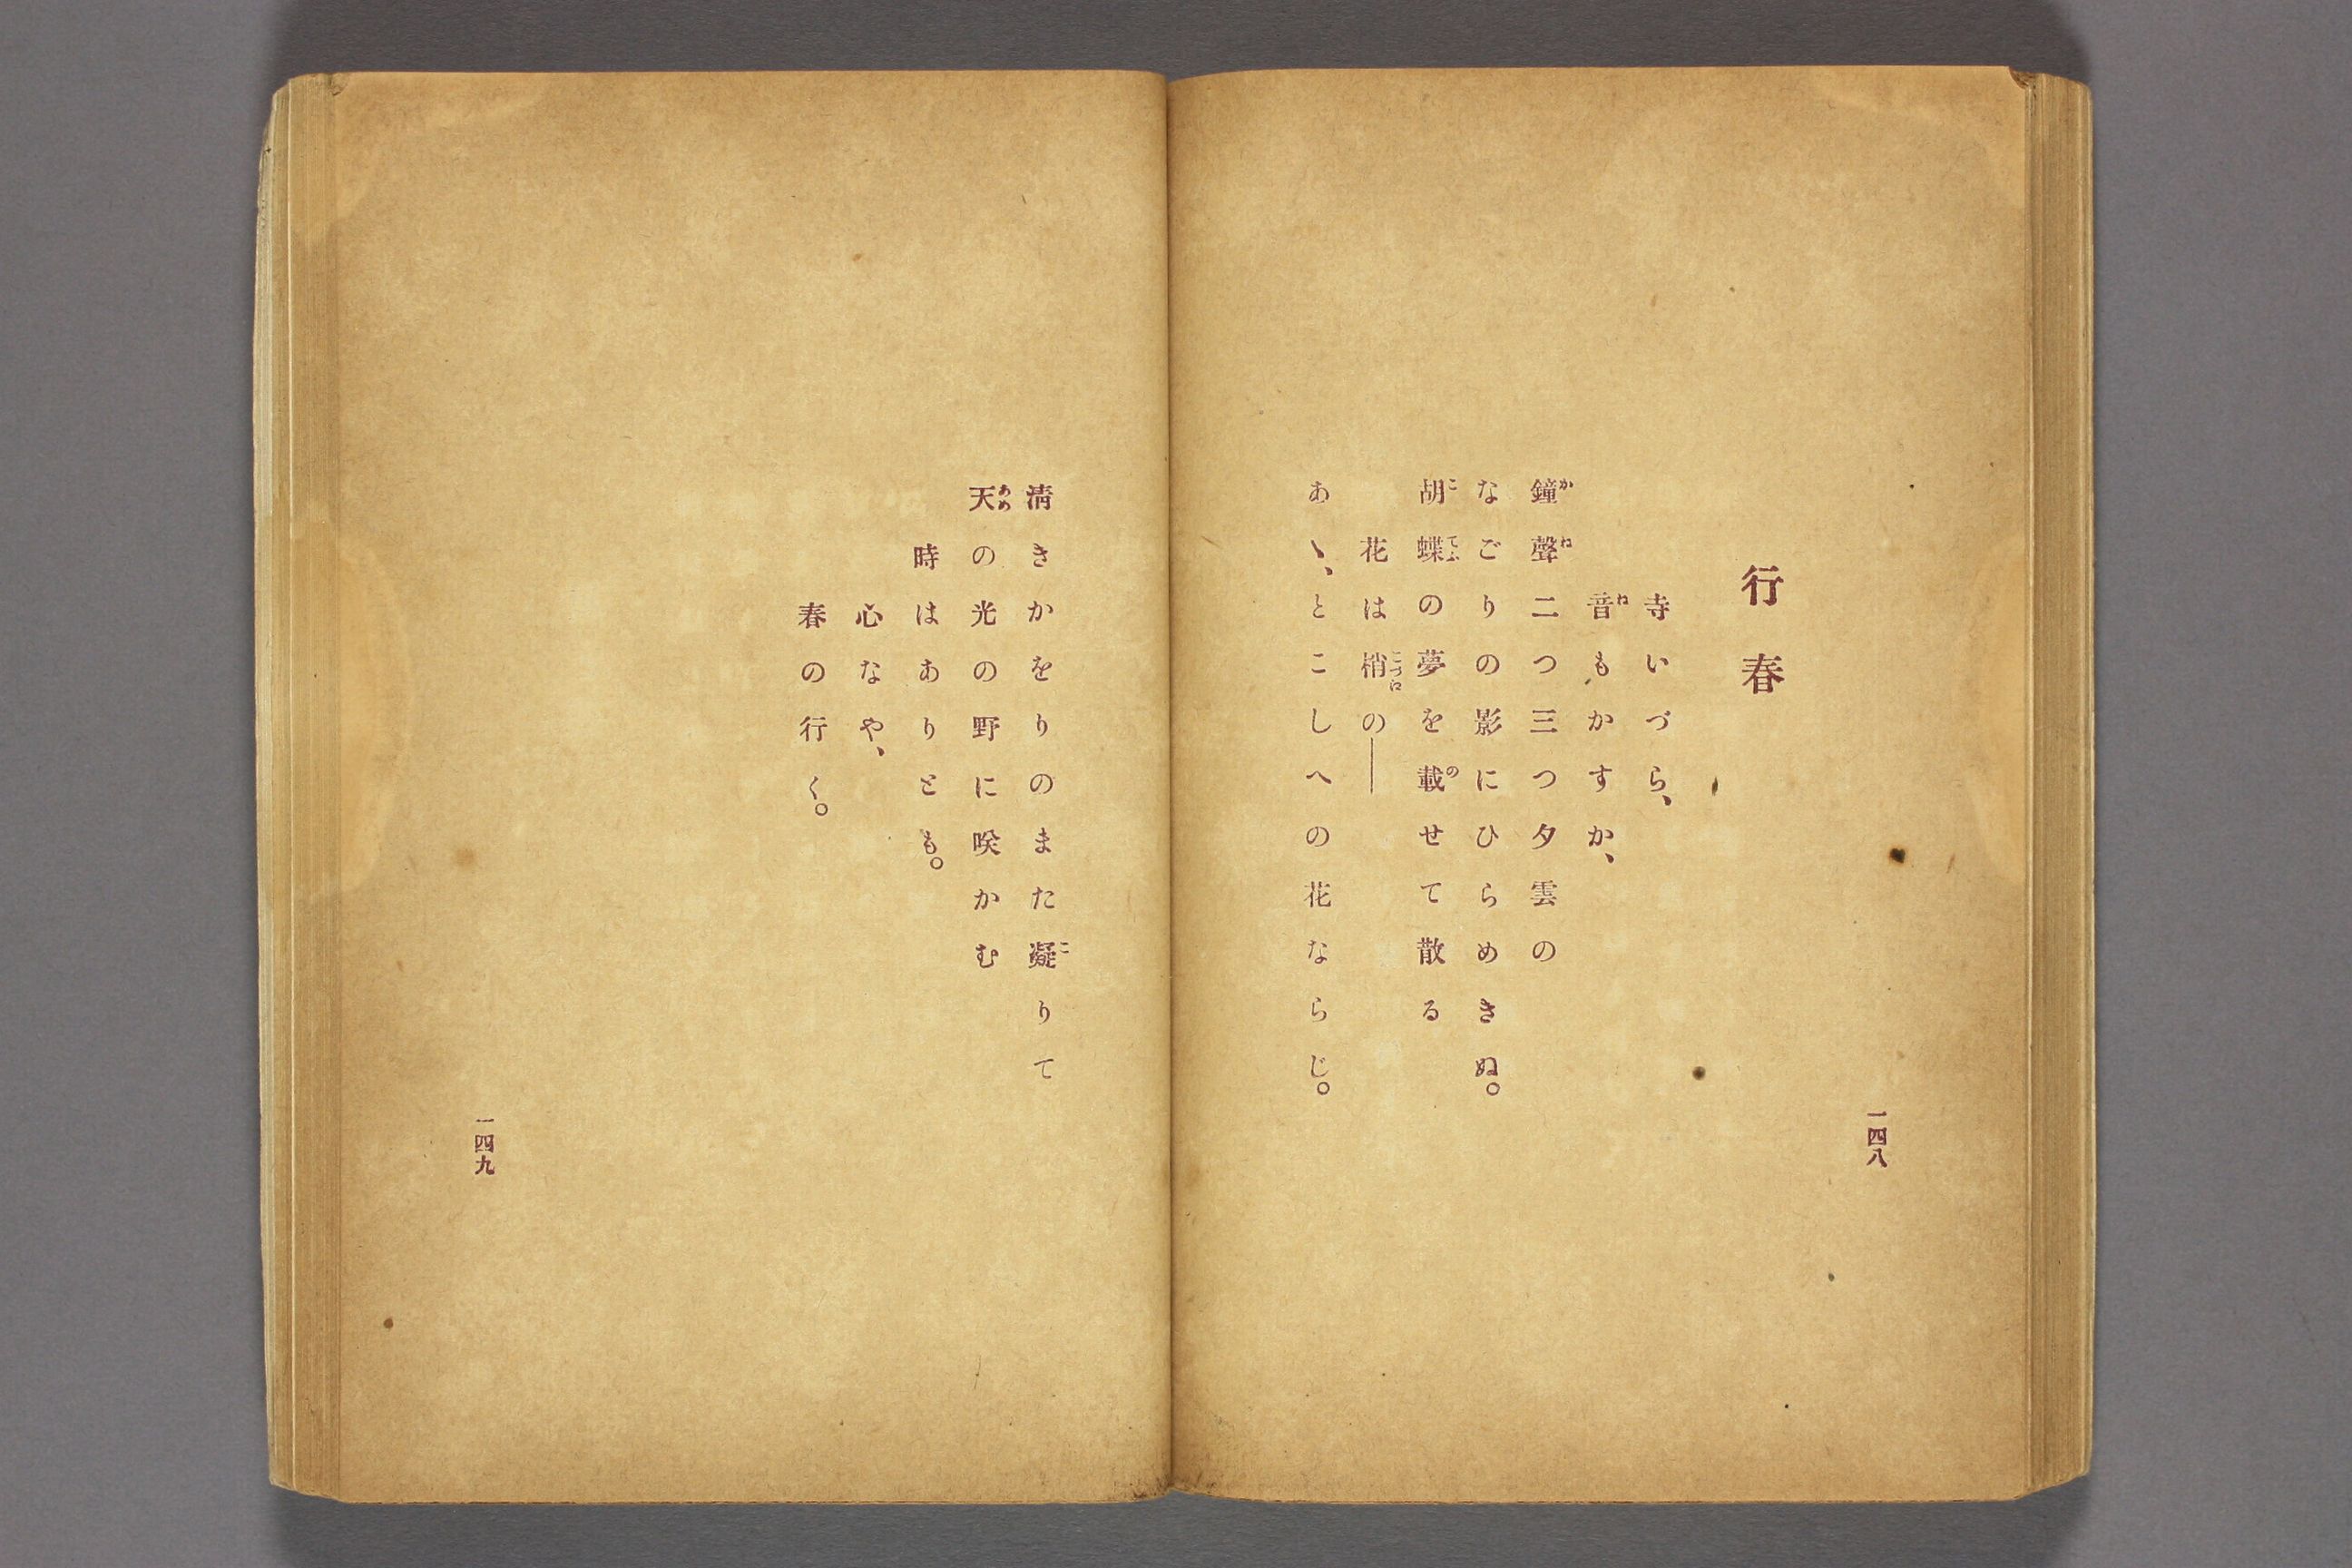 行春
寺いづら、
音もかすか、
鐘聲二つ三つ夕雲の
なごりの影にひらめきぬ。
胡蝶の夢を載せて散る
花は梢の――
あゝ、とこしへの花ならじ。
一四八
清きかをりのまた凝りて
天の光の野に咲かむ
時はありとも。
心なや、
春の行く。
一四九